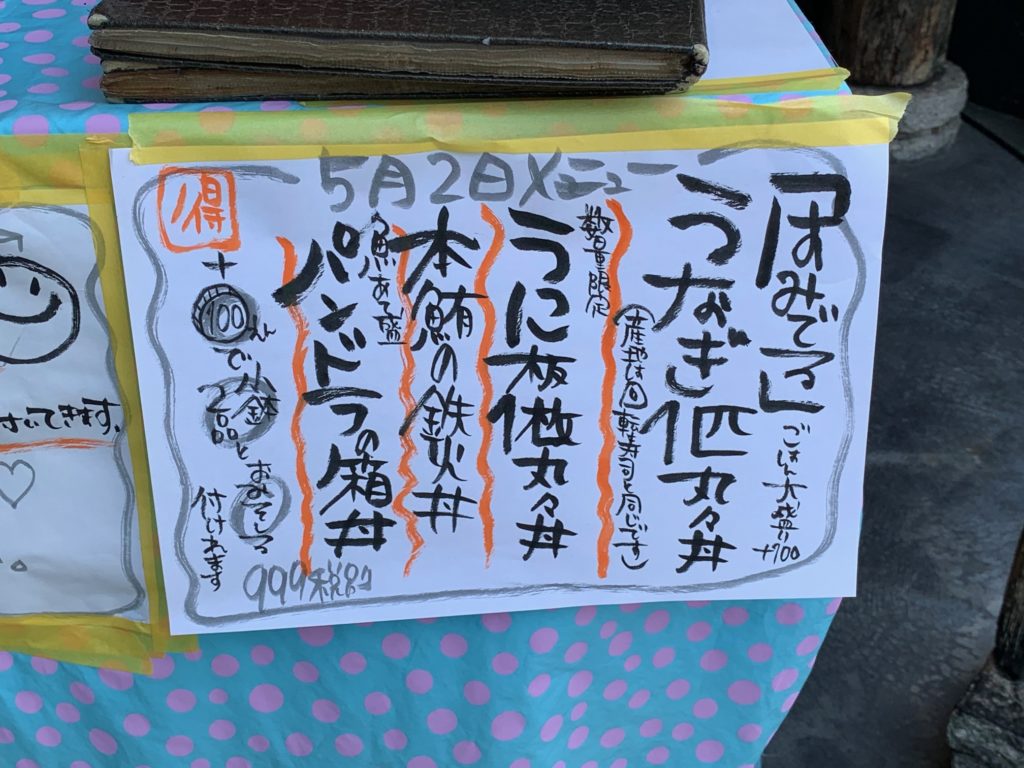 5月2日メニュー
「はみでる」
ごはん大盛り+100
うなぎ1匹丸々丼
(産地は回転寿司と同じです)
数量限定
うに板1枚丸々丼
本鮪の鉄火丼
魚あて盛
パンドラの箱丼
999税別
得
+
100えんで小鉢
2品と
おみそしる
付けれます